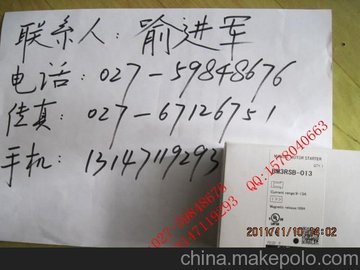 联系人：喻进军
电话：027-59848676
传真：027-67126751
手机：13147119293
QQ:1578040663
027-59848676
13147119293
MOTOR STARTER
BM3RSB-013
2011/11/10 14:02
china.makepolo.com